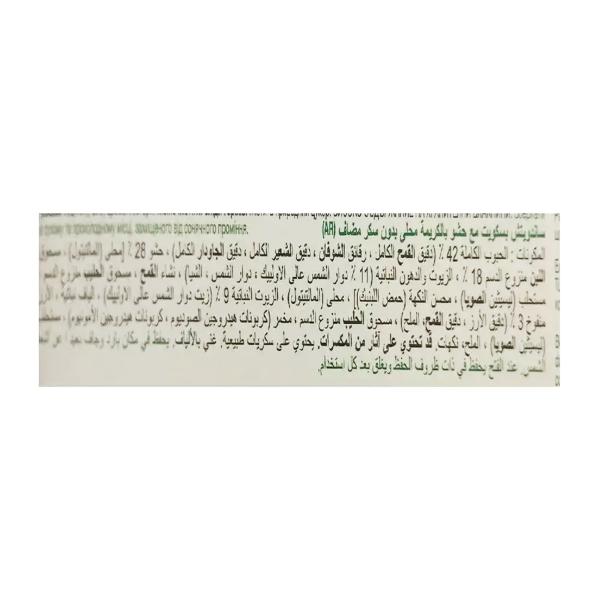 прохолодному місці, захищеного від сонячного проміння.
ساندويتش بسكويت مع حشو بالكريمة محلى بدون سكر مضاف (AR)
المكونات : الحبوب الكاملة 42 ٪ (دقيق القمح الكامل ، رقائق الشوفان ، دقيق الشعير الكامل ، دقيق الجاودار الكامل) ، حشو 28 ٪ [محلي (المالتيتول) ، مسحوق
اللبن منزوع الدسم 18 ٪ ، الزيوت والدهون النباتية (11 ٪ دوار الشمس عالي الأوليك ، دوار الشمس ، الشيا) ، نشاء القمح ، مسحوق الحليب منزوع الدسم
مستحلب (ليسيثين الصويا) ، محسن النكهة (حمض اللبنيك)] ، محلى (المالتيتول) ، الزيوت النباتية 9 ٪ (زيت دوار الشمس عالي الاوليك) ، الياف نباتية ،
منفوخ 3 ٪ (دقيق الأرز ، دقيق القمح، الملح) ، مسحوق الحليب منزوع الدسم ، مخمر (كربونات هيدروجين الصوديوم ، كربونات هيدروجين الأمونيوم) ،
(ليسيثين الصويا) ، الملح، نكهات. قد تحتوي على آثار من المكسرات. يحتوي على سكريات طبيعية. غني بالألياف. يحفظ في مكان بارد وجاف بعيد عن
الشمس. عند الفتح يحفظ في ذات ظروف الحفظ ويغلق بعد كل استخدام.